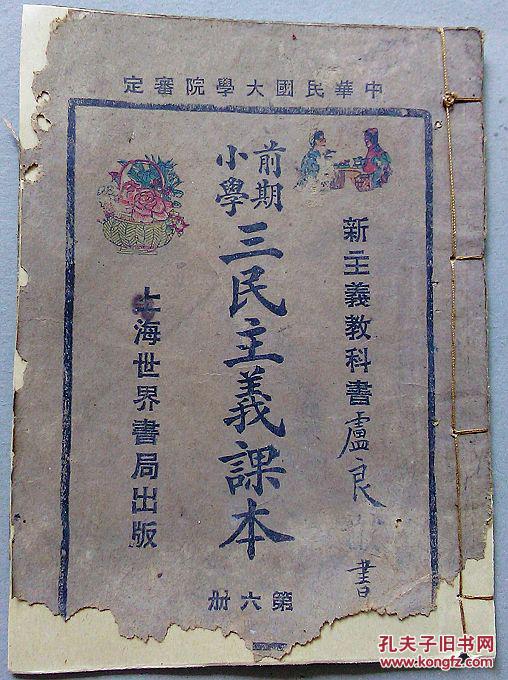 中華民國大學院審定
新主義教科書
盧良
書
前期
小學
三民主義課本
上海世界書局出版
第六冊
孔夫子旧书网
www.kongfz.com